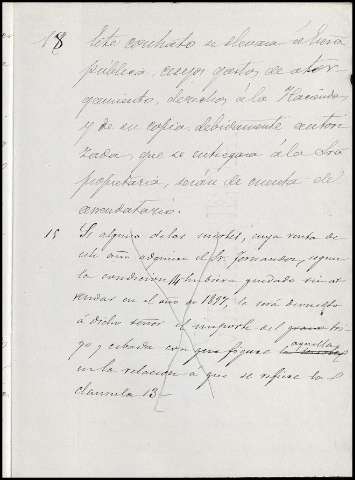 18 Este contrato se elevara á Escra
publica, cuyos gastos de otor-
gamiento, derechos á la Hacienda,
y de su copia, debidamente autori-
zada, que se entregara á la Sra
propietaria, serán de cuenta del
arrendatario.
15 Si alguna de las suertes, cuya renta de
este año adquiere el Sr. Fernandez, segun
la condicion 14 hubiera quedado sin ar-
rendar en el año de 1897, le será devuelto
á dicho señor el importe del grano tri-
go y cebada con que figure aquella
en la relacion á que se refiere la
clausula 13-